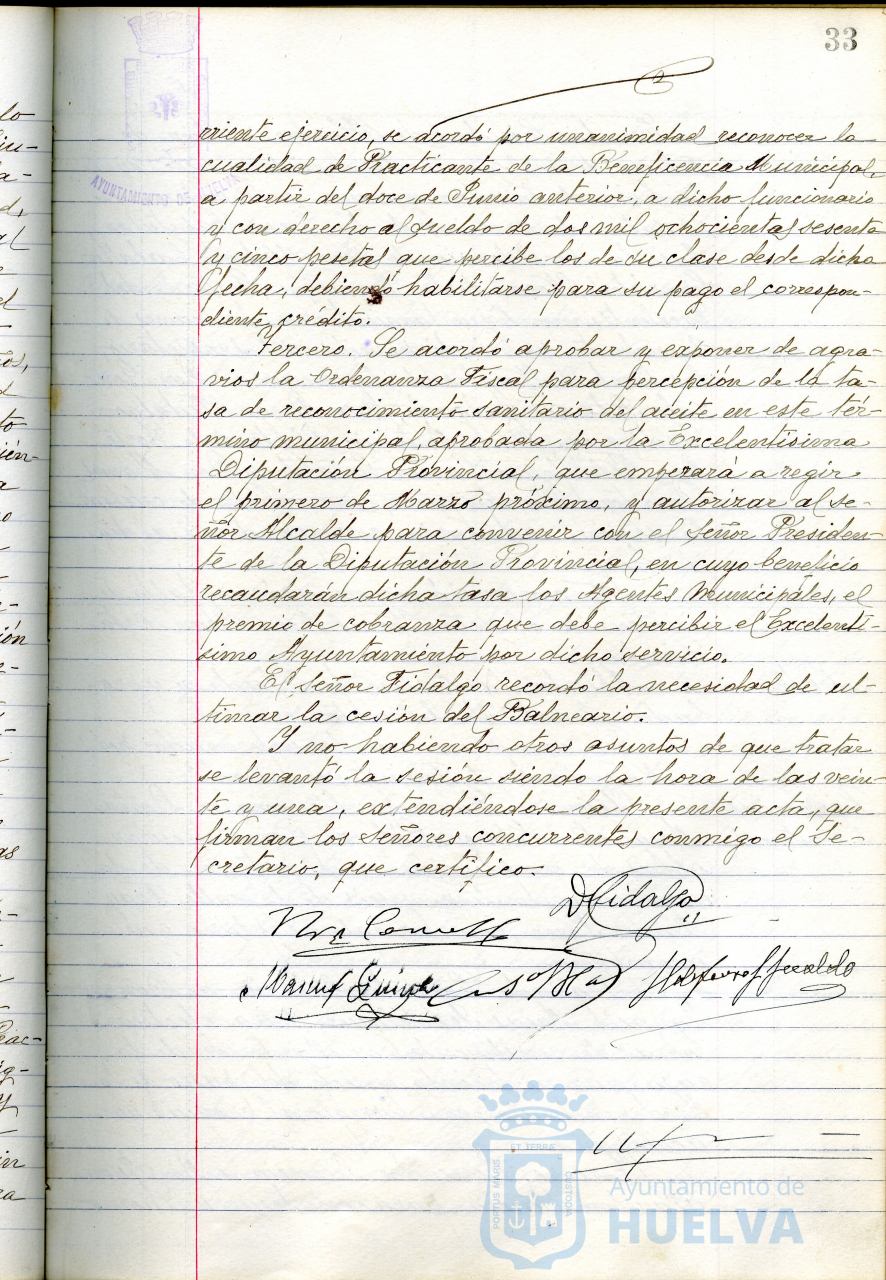 33
rriente ejercicio, se acordó por unanimidad reconocer la
cualidad de Practicante de la Beneficencia Municipal,
a partir del doce de Junio anterior, a dicho funcionario
y con derecho al sueldo de dos mil ochocientas sesenta
y cinco pesetas que percibe los de su clase desde dicha
fecha, debiendo habilitarse para su pago el correspon-
diente crédito.
Tercero. Se acordó aprobar y exponer de agra-
vios la Ordenanza Fiscal para percepción de la ta-
sa de reconocimiento sanitario del aceite en este tér-
mino municipal, aprobada por la Excelentísima
Diputación Provincial, que empezará a regir
el primero de Marzo próximo, y autorizar al se-
ñor Alcalde para convenir con el Señor Presiden-
te de la Diputación Provincial, en cuyo beneficio
recaudarán dicha tasa los Agentes Municipales, el
premio de cobranza que debe percibir el Excelentí-
simo Ayuntamiento por dicho servicio.
El Señor Fidalgo recordó la necesidad de ul-
timar la cesión del Balneario.
Y no habiendo otros asuntos de que tratar
se levantó la sesión siendo la hora de las vein-
te y una, extendiéndose la presente acta, que
firman los Señores concurrentes conmigo el Se-
cretario, que certifico.
DFidalgo
AYUNTAMIENTO DE HUELVA
ET TERRÆ
PORTUS MARIS
CUSTODIA
Ayuntamiento de
HUELVA